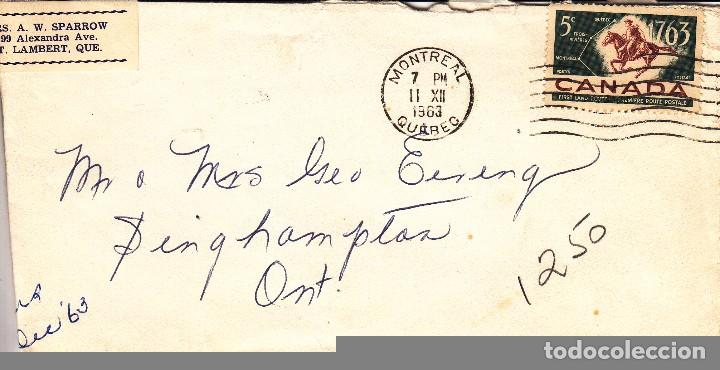 RS. A. W. SPARROW
99 Alexandra Ave.
T. LAMBERT, QUE.
MONTREAL
7 PM
11 XII
1963
QUEBEC
5c
QUEBEC
1763
TROIS-
MONTREAL
CANADA
FIRST LAND ROUTE PREMIÈRE ROUTE POSTALE
Mr & Mrs Geo
Binghampton
Ont.
1250
Dec '63
todocoleccion.net